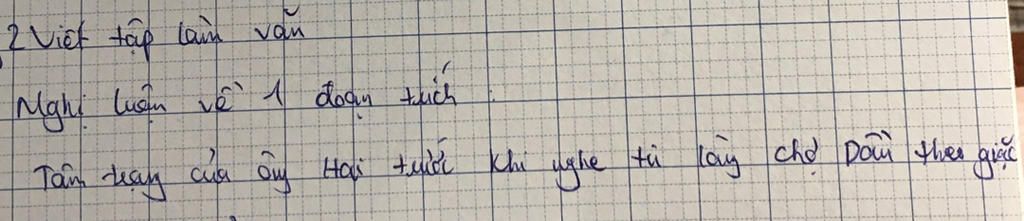 2 Viết tập làm văn
Nghị luận về 1 đoạn trích
Tâm trạng của ông Hai trước khi nghe tin làng chợ Dầu theo giặc